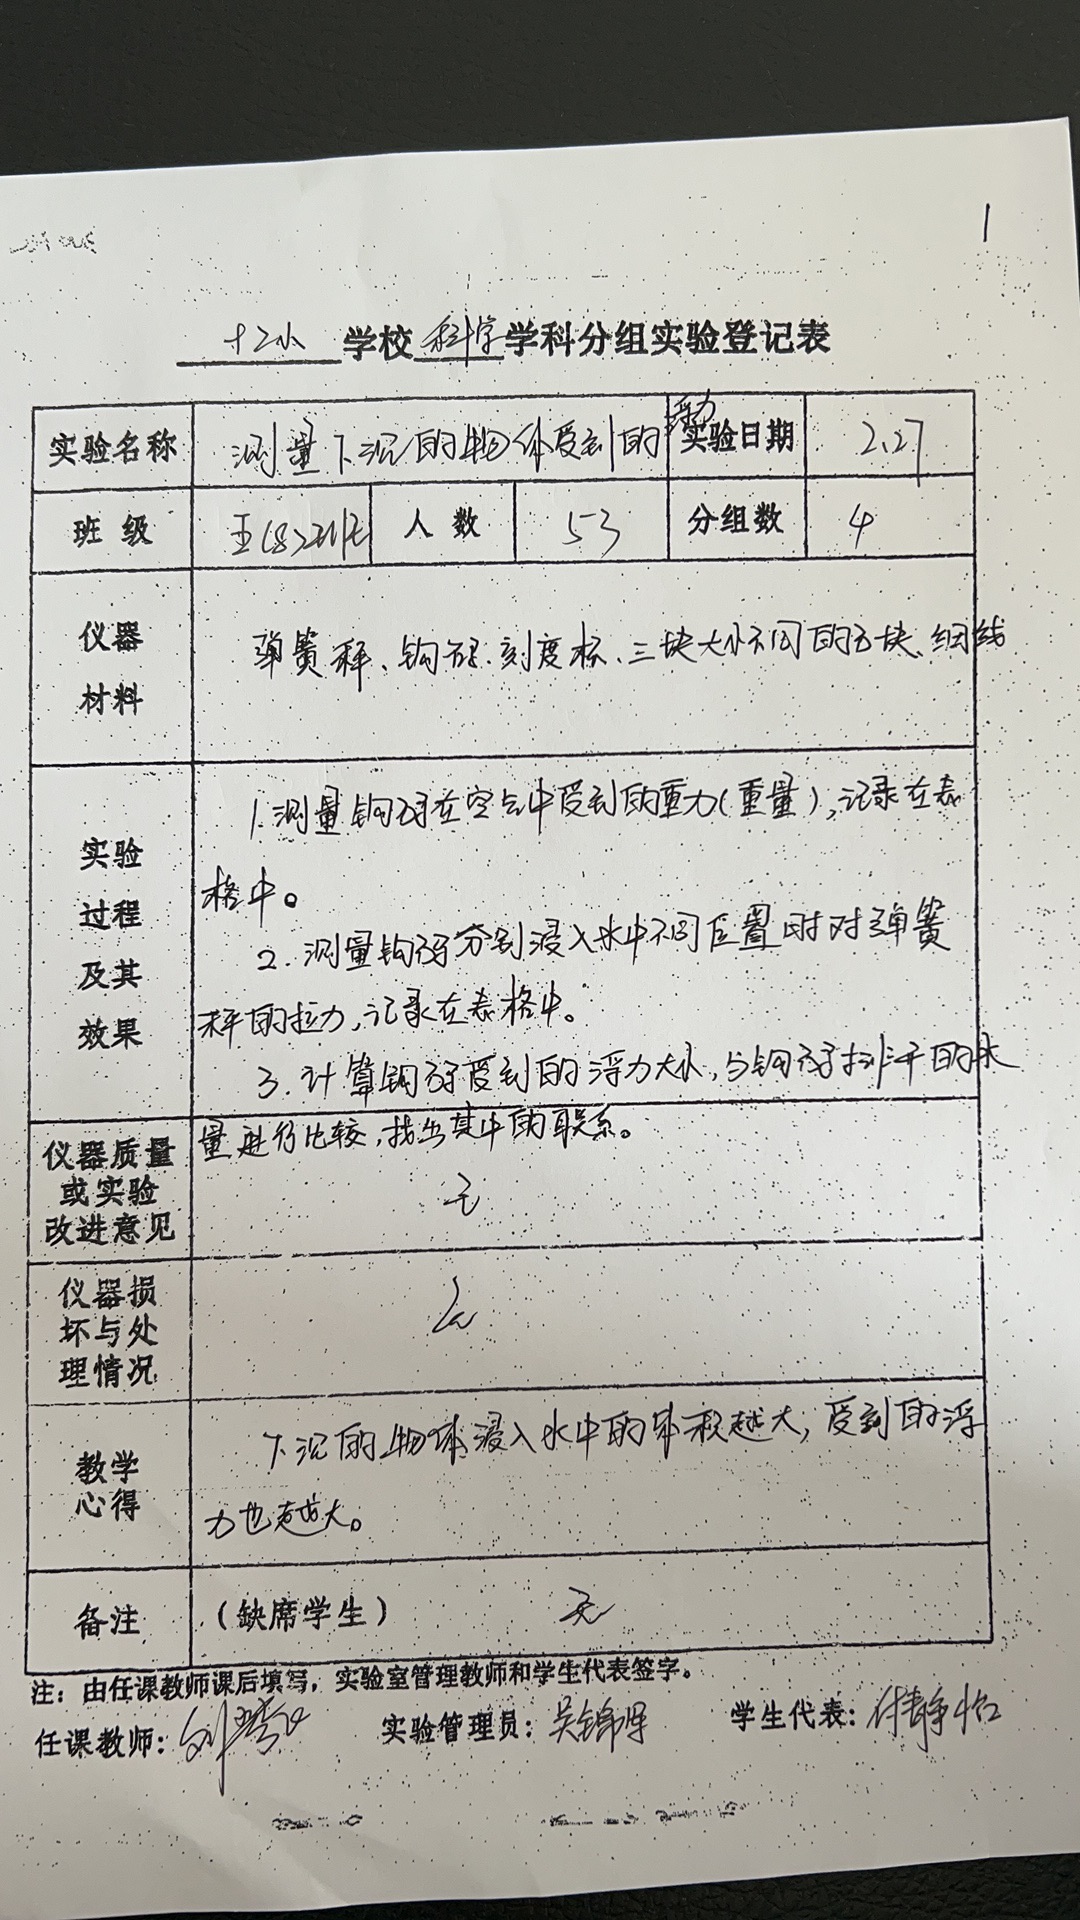 1
十二小学校科学学科分组实验登记表
实验名称 测量下沉的物体受到的浮力 实验日期 2.27
班级 五(8)班 人数 53 分组数 4
仪器
材料
弹簧秤、钩码、刻度杯、三块大小不同的石块、细线
实验
过程
及其
效果
1.测量钩码在空气中受到的重力(重量),记录在表
格中。
2.测量钩码分别浸入水中不同位置时对弹簧
秤的拉力,记录在表格中。
3.计算钩码受到的浮力大小,与钩码排开的水
量进行比较,找出其中的联系。
仪器质量
或实验
改进意见
无
仪器损
坏与处
理情况
无
教学
心得
下沉的物体浸入水中的体积越大,受到的浮
力也越大。
备注 (缺席学生) 无
注:由任课教师课后填写,实验室管理教师和学生代表签字。
任课教师: 实验管理员:吴锦 学生代表:付静怡